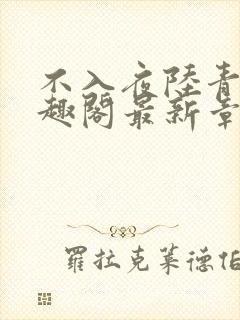 不入夜陸青
趣閣最新章
羅拉克萊德伯